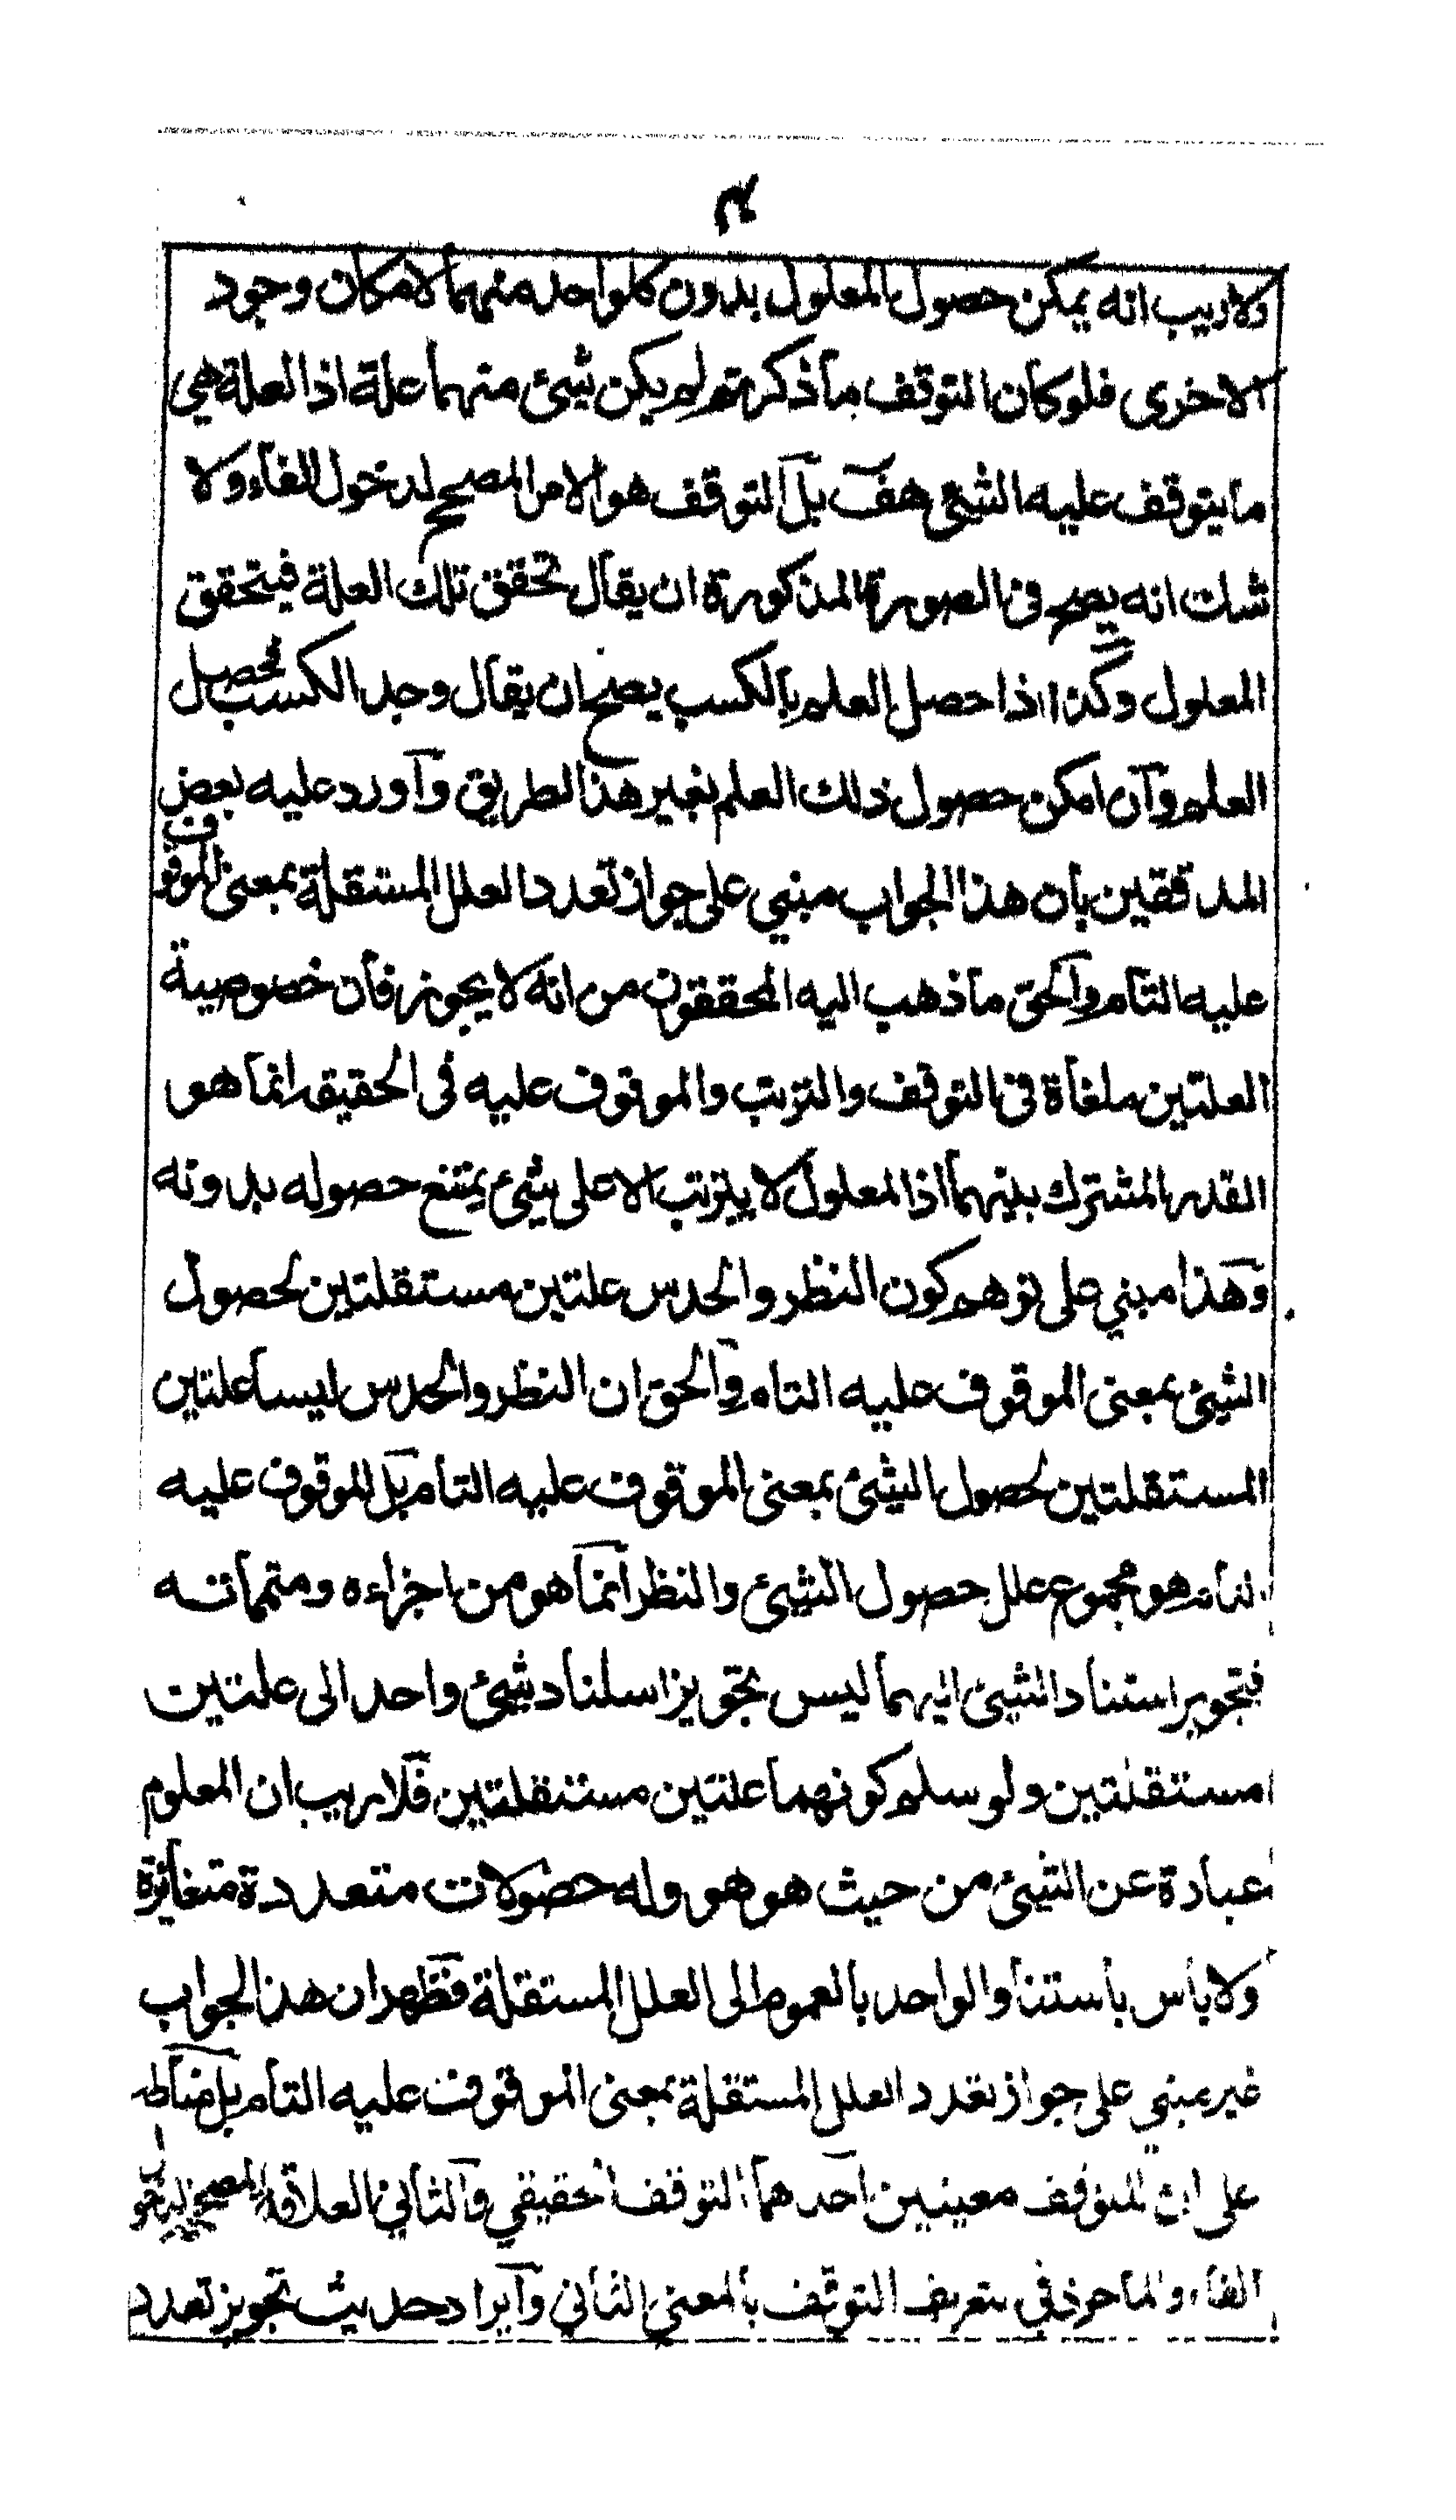 ۴
ولاريب انه يمكن حصول المعلول بدون كلواحد منهما لامكان وجود
الاخرى فلوكان التوقف ماذكرتم لم يكن شيئ منهما علة اذا العلة هي
ما يتوقف عليه الشيئ هف بل التوقف هو الامر المصحح لدخول الفاء ولا
شك انه يصح في الصورة المذكورة ان يقال تحقق تلك العلة فيتحقق
المعلول وكذا اذا حصل العلم بالكسب يصح ان يقال وجد الكسب فحصل
العلم وان امكن حصول ذلك العلم بغير هذا الطريق واورد عليه بعض
المدققين بان هذا الجواب مبني على جواز تعدد العلل المستقلة بمعنى الموقوف
عليه التام والحق ماذهب اليه المحققون من انه لا يجوز فان خصوصية
العلتين ملغاة في التوقف والترتب والموقوف عليه في الحقيقة انما هو
القدر المشترك بينهما اذا المعلول لا يترتب الا على شيئ يمتنع حصوله بدونه
وهذا مبني على توهم كون النظر والحدس علتين مستقلتين لحصول
الشيئ بمعنى الموقوف عليه التام والحق ان النظر والحدس ليسا علتين
المستقلتين لحصول الشيئ بمعنى الموقوف عليه التام بل الموقوف عليه
التام هو مجموع علل حصول الشيئ والنظر انما هو من اجزاءه ومتمماته
فتجويز استناد الشيئ اليهما ليس بتجويز استناد شيئ واحد الى علتين
مستقلتين ولو سلم كونهما علتين مستقلتين فلاريب ان المعلوم
عبارة عن الشيئ من حيث هو هو وله حضولات متعددة متغائرة
ولا باس باستناد الواحد بالعموم الى العلل المستقلة فظهر ان هذا الجواب
غير مبني على جواز تعدد العلل المستقلة بمعنى الموقوف عليه التام بل مناطه
على ان للتوقف معنيين احدهما التوقف الحقيقي والثاني العلاقة المصححة لدخول
الفاء والماخوذ في تعريف التوقف بالمعنى الثاني وايراد حديث تجويز تعدد